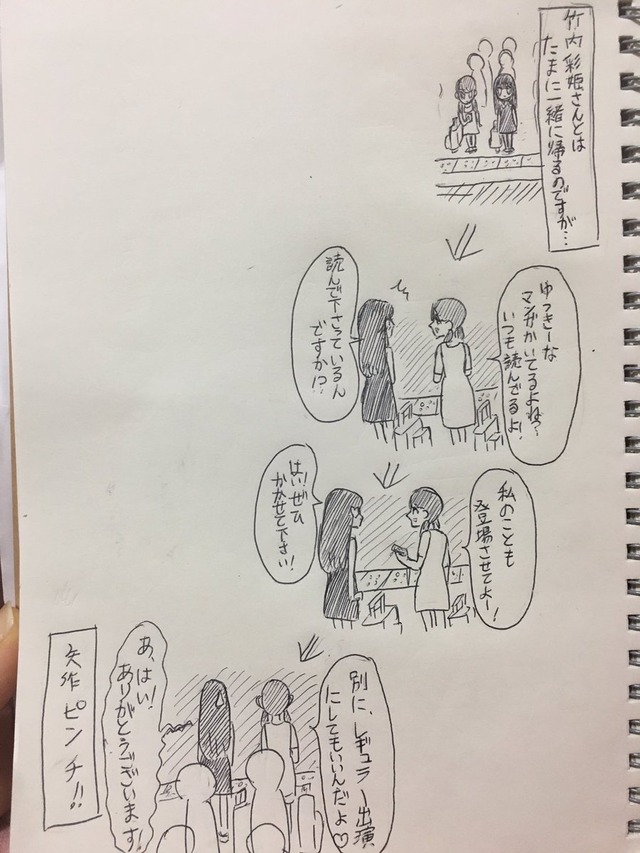 竹内彩姫さんとは
たまに一緒に帰るのですが…
ゆっきーな
マンガかいてるよね?
いつも読んでるよ!
読んで下さっているん
ですか!?
私のことも
登場させてよー!
はい!ぜひ
かかせて下さい!
別に、レギュラー出演
にしてもいいんだよ♡
あ、はい!
ありがとうございます!
矢作ピンチ!!